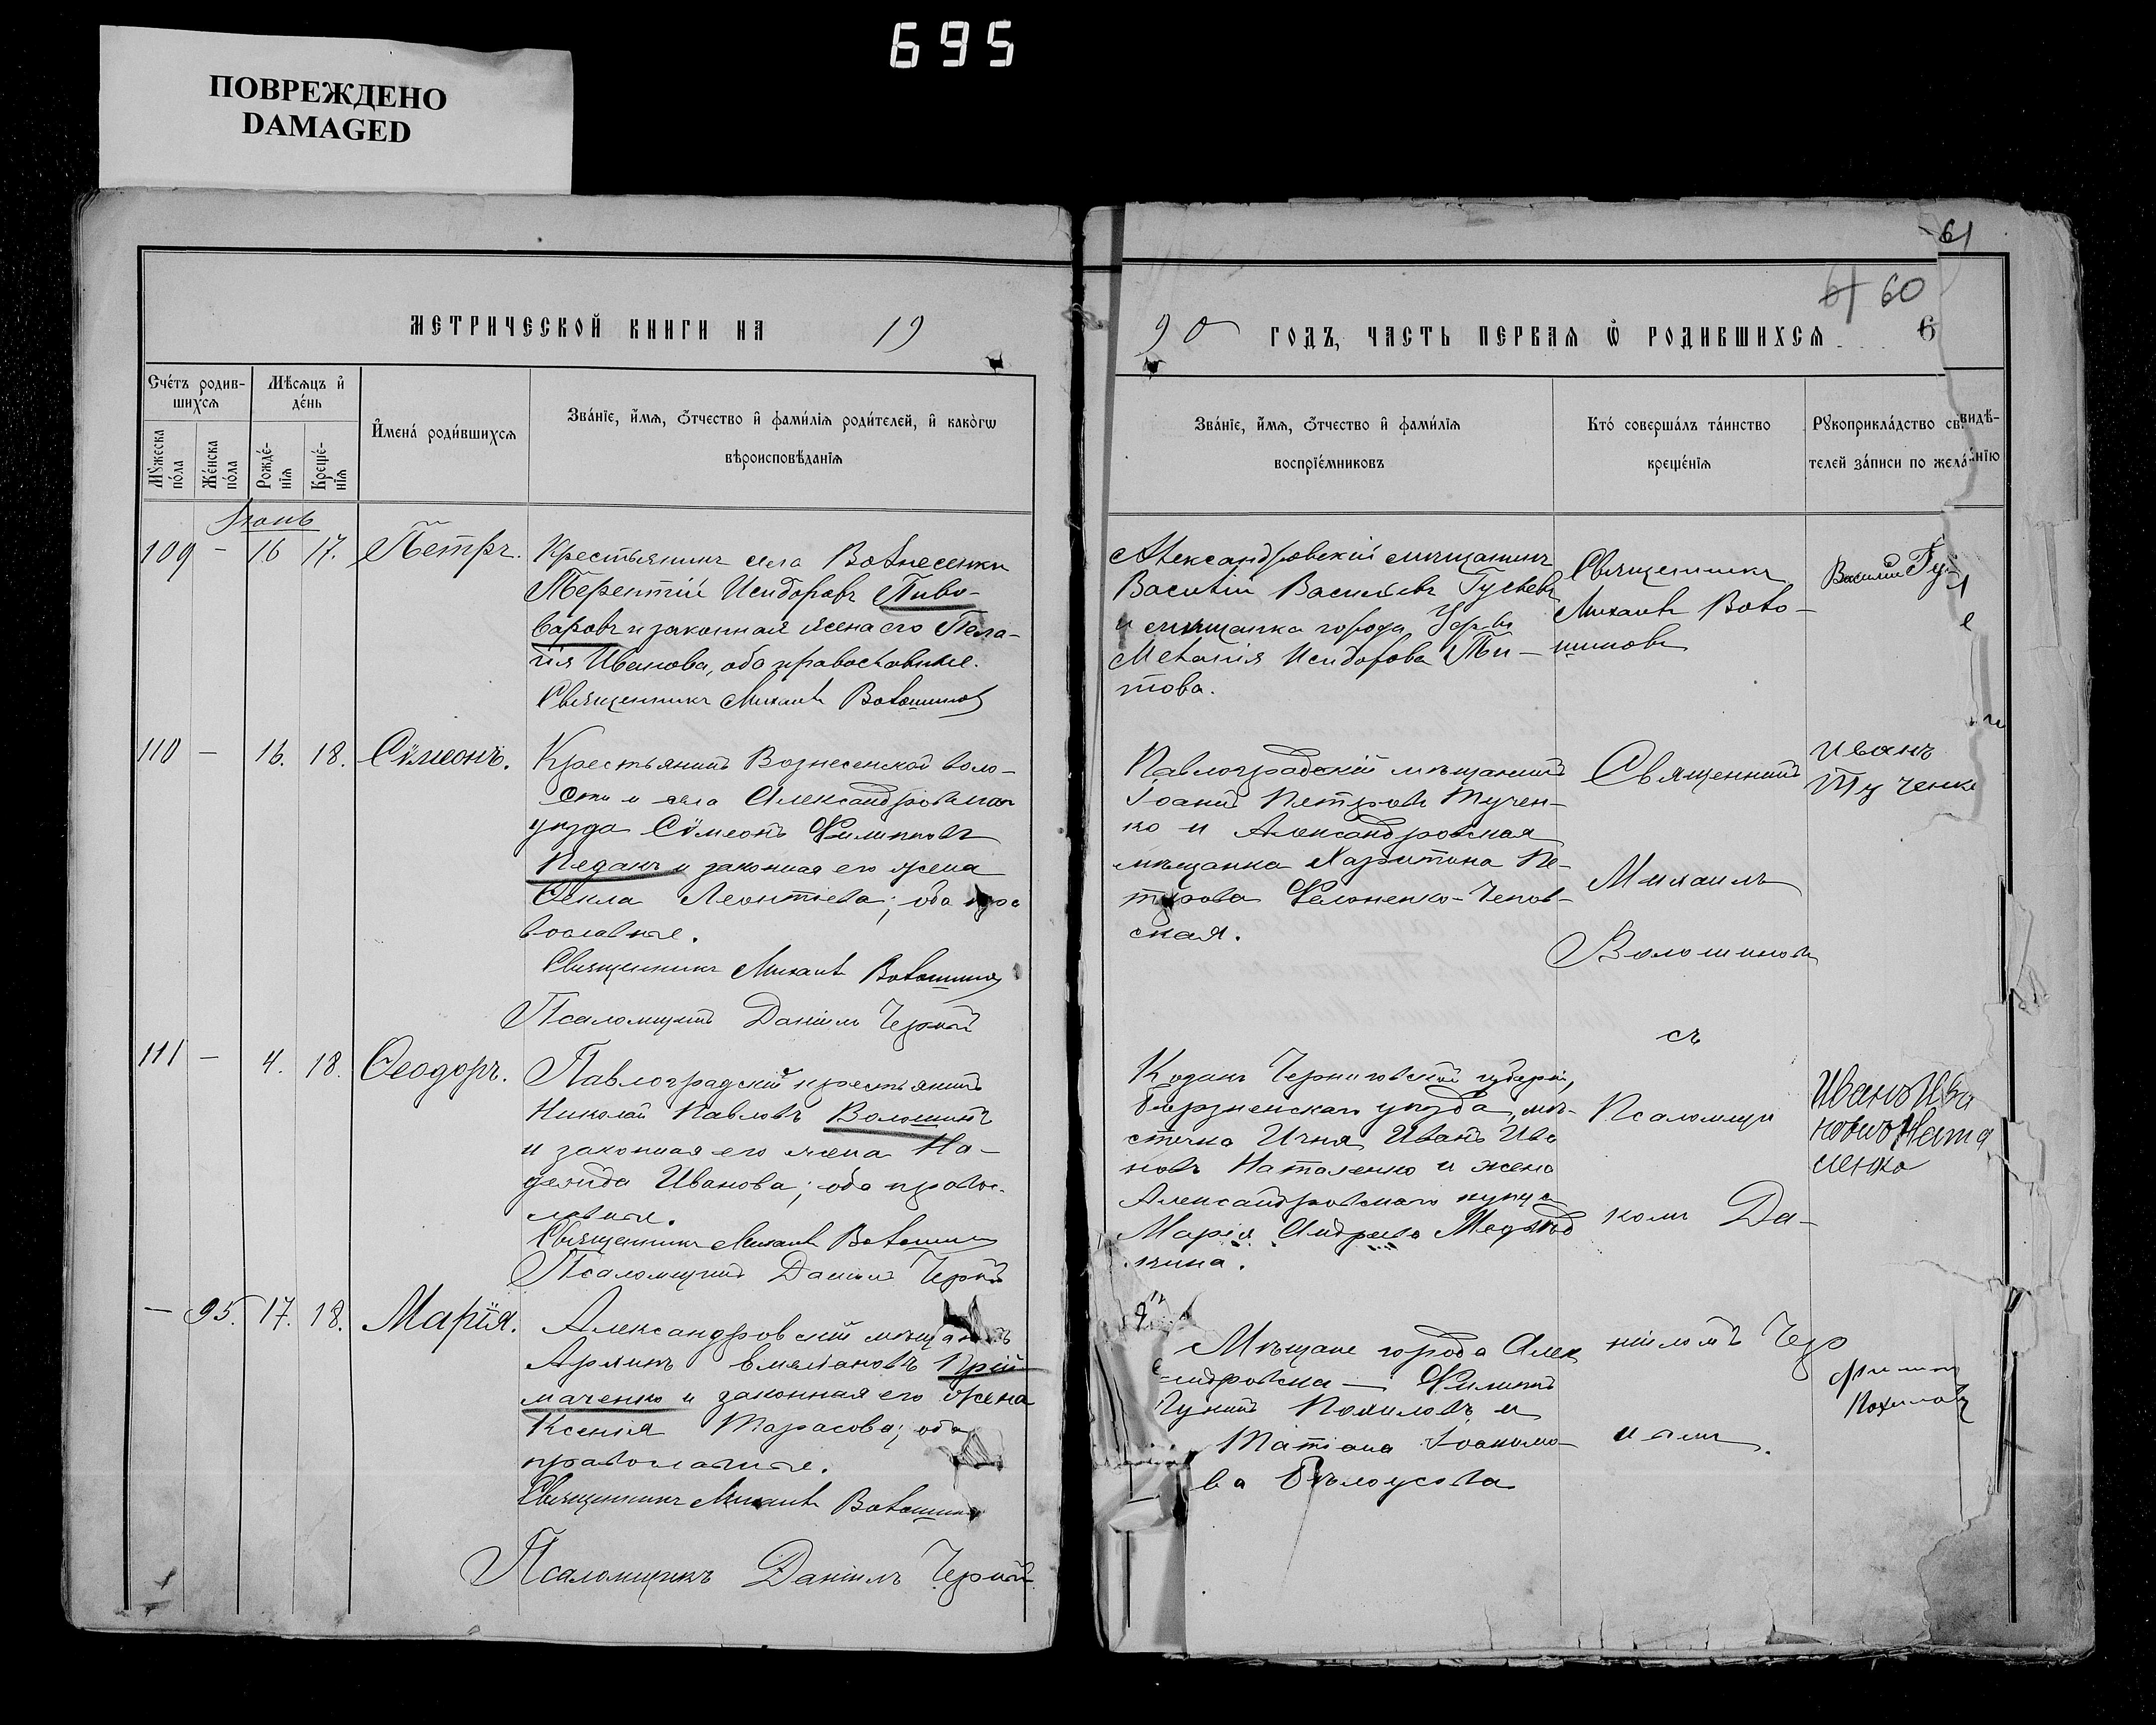 695
ПОВРЕЖДЕНО
DAMAGED
61
61 60
МЕТРИЧЕСКОЙ КНИГИ НА 19
90 ГОДЪ, ЧАСТЬ ПЕРВАЯ Ѿ РОДИВШИХСЯ 6
Счéтъ родив-
шихсѧ
Мѣсѧцъ и҆
дéнь
И҆менá роди́вшихсѧ
Звáнїе, и҆́мѧ, ѻ҆́тчество и҆ фами́лїѧ роди́телей, и҆ какóгѡ
вѣроисповѣ́данїѧ
Мꙋжеска
пóла
Жéнска
пóла
Рождé-
нїѧ
Крещé-
нїѧ
Звáнїе, и҆́мѧ, ѻ҆́тчество и҆ фами́лїѧ
воспрїе́мниковъ
Ктó совершáлъ тáинство
крещéнїѧ
Рꙋкоприклáдство свидѣ-
телей зáписи по желáнїю
Іюнь
109 — 16 17. Петръ.
Крестьянинъ села Вознесенки
Терентій Исидоровъ Пиво-
варовъ и законная жена его Пела-
гія Иванова, оба православные.
Священникъ Михаилъ Волошиновъ
Александровскій мѣщанинъ
Василій Васильевъ Гусевъ
и мѣщанка города
Меланія Исидорова Ти-
това.
Священникъ
Михаилъ Воло-
шиновъ
Василий Гу
110 — 16. 18. Сѵмеонъ.
Крестьянинъ Вознесенской воло-
сти и села Александровскаго
уѣзда Сѵмеонъ Филипповъ
Педанъ и законная его жена
Ѳекла Леонтіева; оба пра
вославные.
Священникъ Михаилъ Волошиновъ
Псаломщикъ Даніилъ Черный
Павлоградскій мѣщанинъ
Іоаннъ Петровъ Тучен-
ко и Александровская
мѣщанка Харитина Пе-
трова Филоненко-Чепов-
ская.
Священникъ
Михаилъ
Волошиновъ
Иванъ
Тученко
111 — 4. 18. Ѳеодоръ.
Павлоградскій крестьянинъ
Николай Павловъ Волошинъ
и законная его жена На-
дежда Иванова; оба правос-
лавные.
Священникъ Михаилъ Волошиновъ
Псаломщикъ Даніилъ Черный
съ
Козакъ Черниговской губерніи,
Борзненскаго уѣзда, мѣ-
стечка Ичня Иванъ Ива
новъ Наталенко и жена
Александровскаго купца
Марія Андреева Медвѣд
кина.
Псаломщи
комъ Да-
Иванъ Ива
новичъ Ната
ленко
— 95. 17. 18. Марїя.
Александровскій мѣщанинъ
Прій-
маченко и законная его жена
Ксенія Тарасова; оба
православные.
Священникъ Михаилъ Волошиновъ
Псаломщикъ Даніилъ Черный
Мѣщане города Алек
сандровска — Филиппъ
Похиловъ и
Татіана Іоакимо-
ва Бѣлоусова
ніиломъ Чер
нымъ.
Филипп
Похиловъ